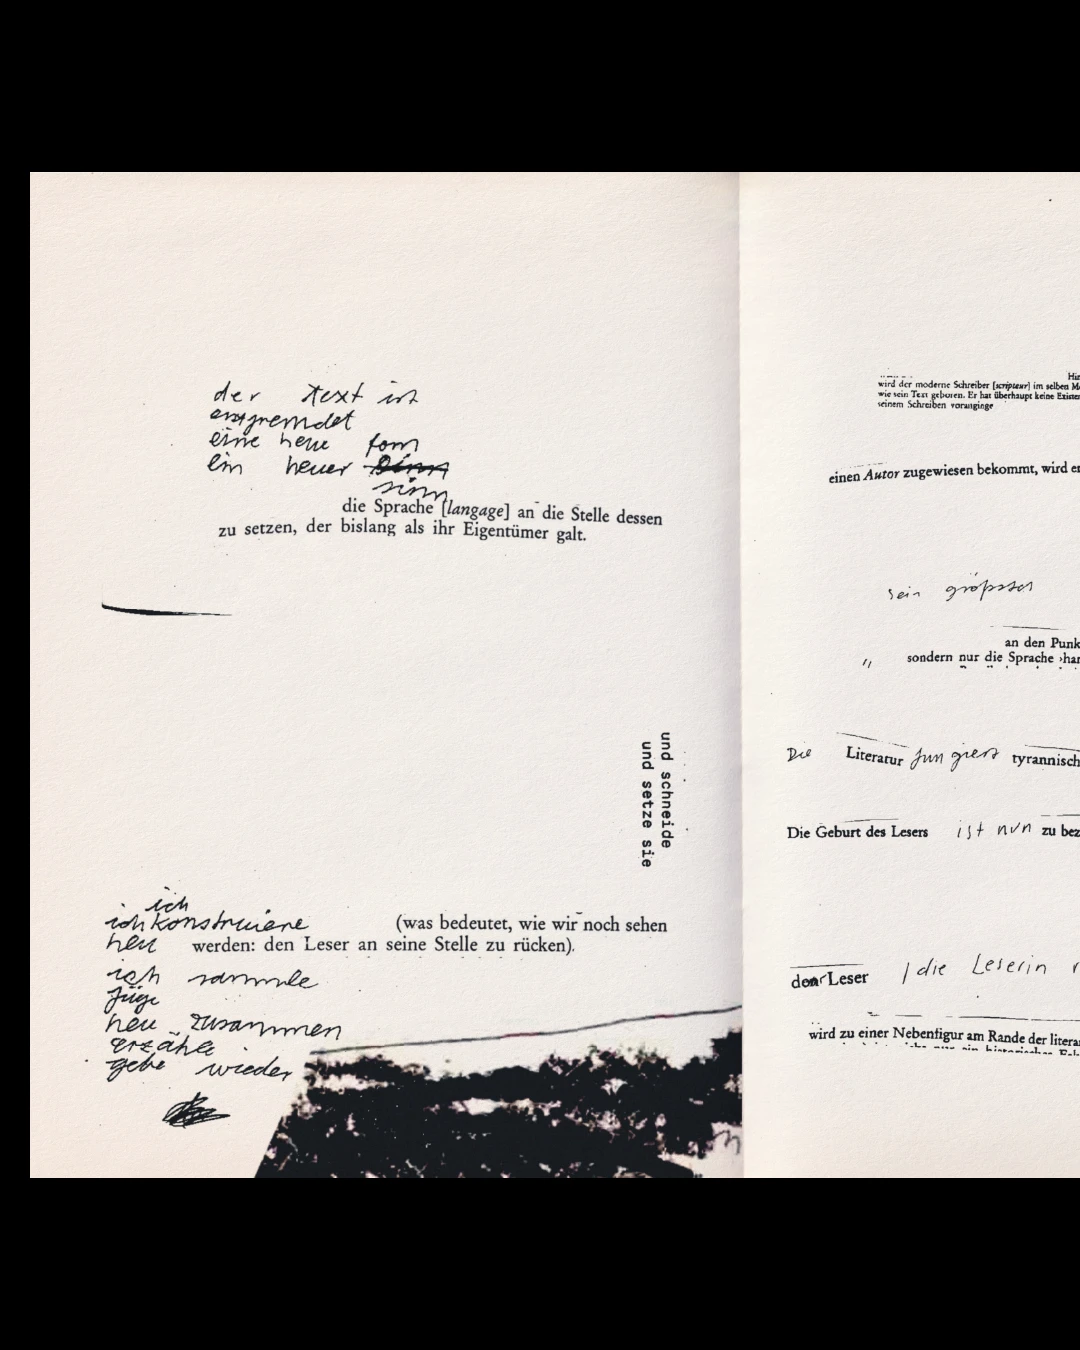 der text ist
entfremdet
eine neue form
ein neuer sinn
sinn
die Sprache [langage] an die Stelle dessen
zu setzen, der bislang als ihr Eigentümer galt.
und schneide
und setze sie
ich
ich konstruiere (was bedeutet, wie wir noch sehen
neu werden: den Leser an seine Stelle zu rücken).
ich sammle
füge
neu zusammen
erzähle
gebe wieder
Hin
wird der moderne Schreiber [scripteur] im selben Mo
wie sein Text geboren. Er hat überhaupt keine Existen
seinem Schreiben voranginge
einen Autor zugewiesen bekommt, wird
sein grösster
an den Punk
" sondern nur die Sprache ›han
Die Literatur fungiert tyrannisch
Die Geburt des Lesers ist nun zu bez
Leser / die Leserin
wird zu einer Nebenfigur am Rande der litera